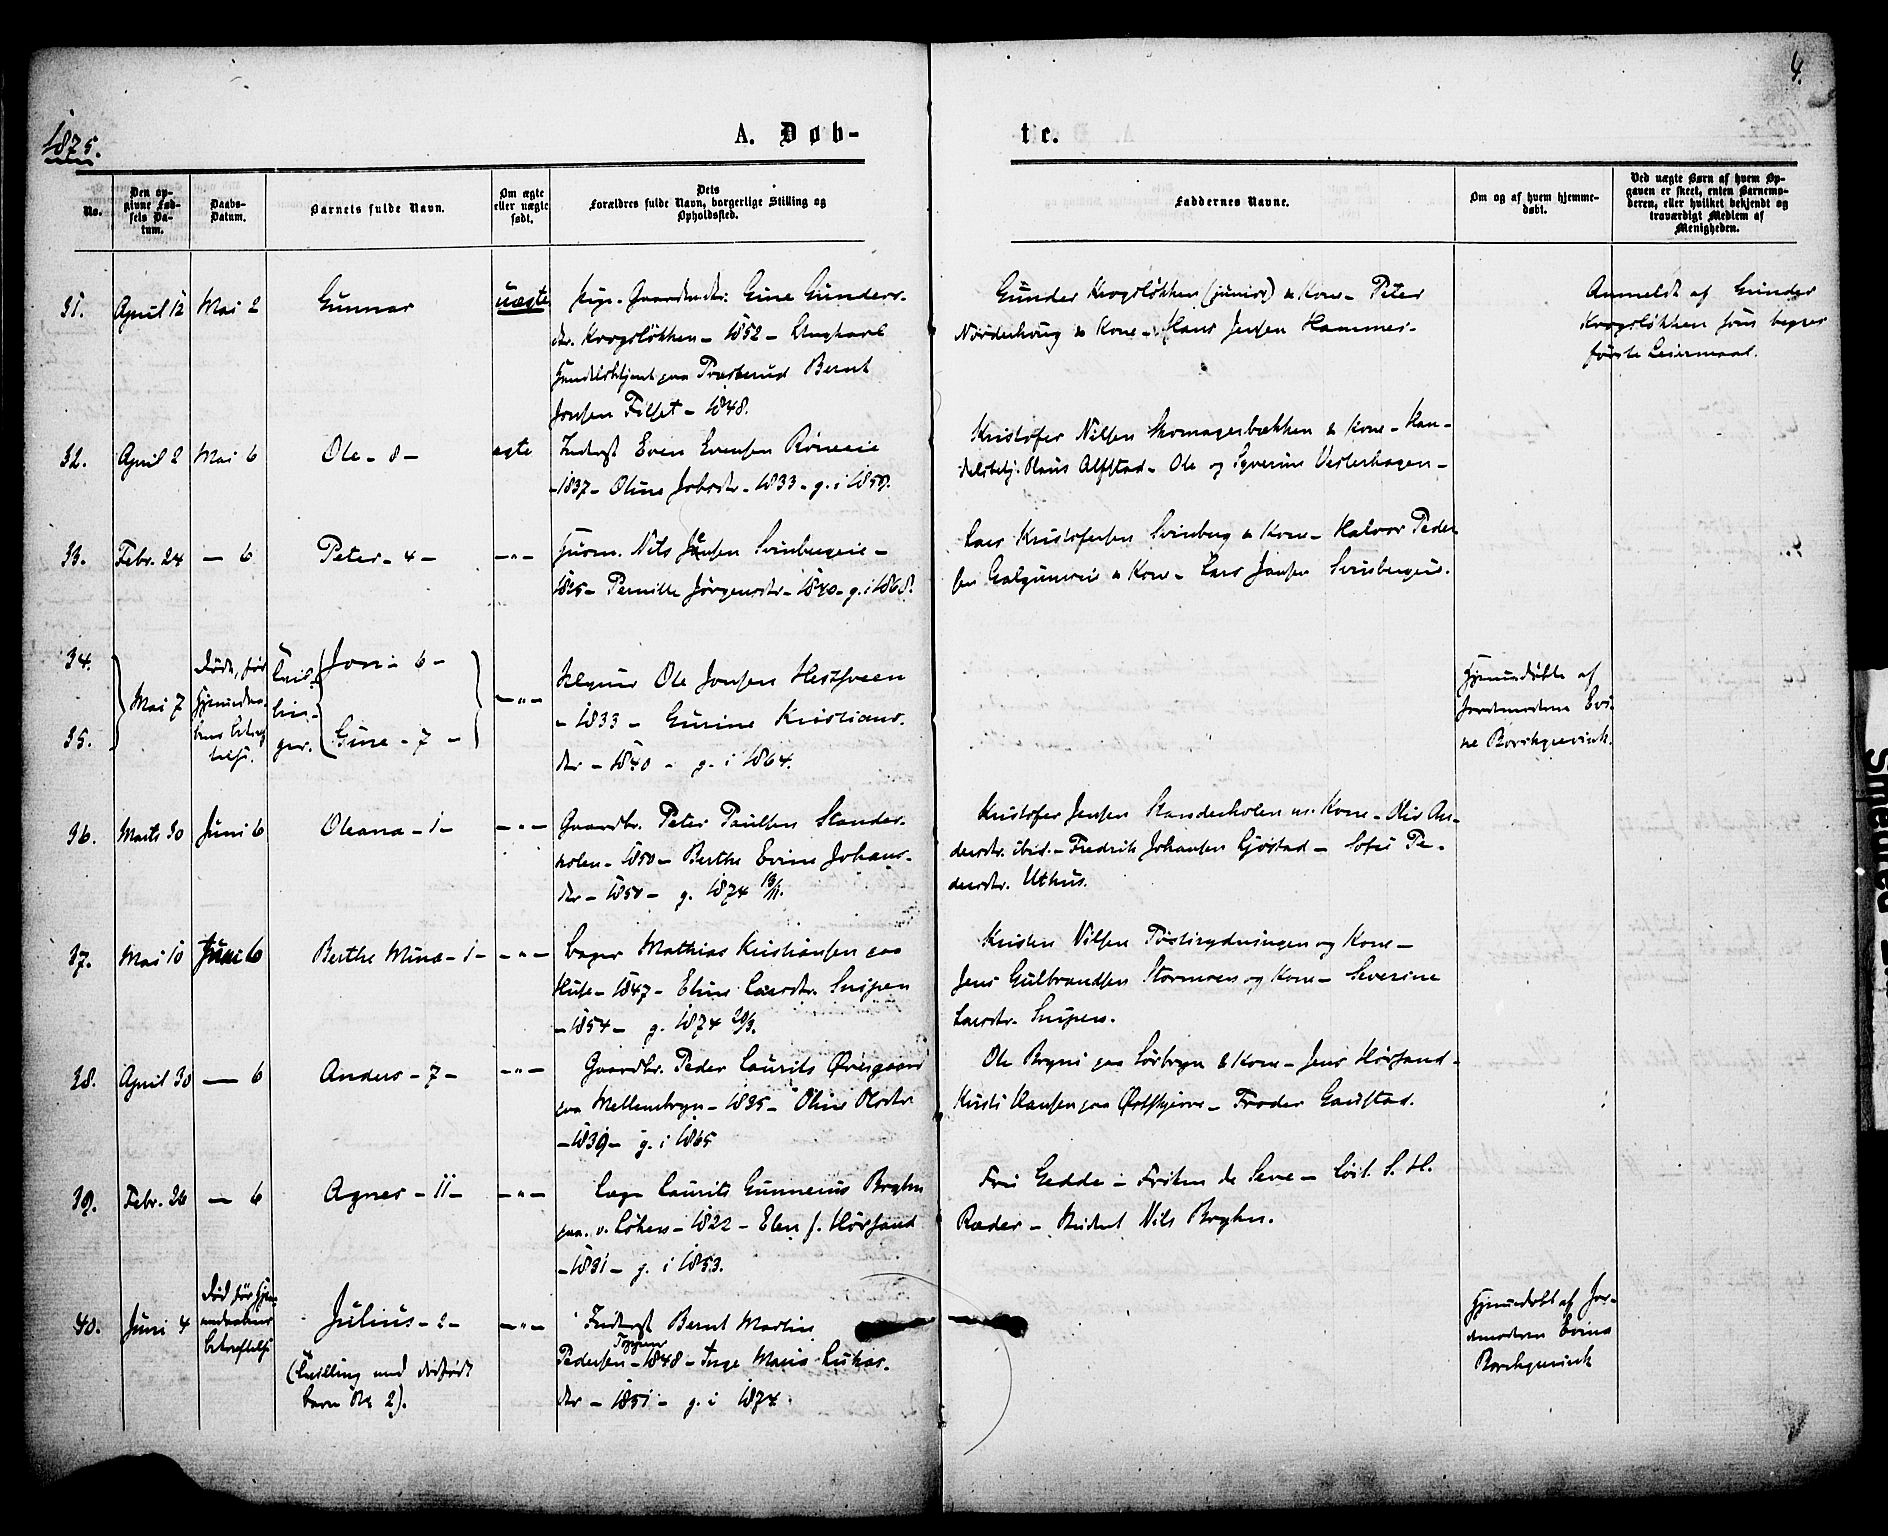 1875.
4.
A. Døb-
te.
No.
Den op-
givne Fød-
sels Da-
tum.
Daabs-
Datum.
Barnets fulde Navn.
Om ægte
eller uægte
født.
Dets
Forældres fulde Navn, borgerlige Stilling og
Opholdssted.
Faddernes Navne.
Om og af hvem hjemme-
døbt.
Ved uægte Børn af hvem Op-
gaven er skeet, enten Barnemo-
deren, eller hvilket bekjendt og
troværdigt Medlem af
Menigheden.
31.
April 12
Mai 2
Gunnar
uægte
pige. Gaardbr.dtr: Eine Gunders-
dtr. Krogsløkken - 1852 - Ungkarl
Jonsen Filset - 1848.
Gunder Krogsløkken (junior) & Kone - Peter
Norderhoug & Kone - Hans Jensen Hammer -
Anmeldt af Gunder
Krogsløkken
første Leiermaal.
32.
April 2
Mai 6
Ole - 8 -
ægte
Inderst Even Evensen Røneeie
- 1837 - Oline Jobsdtr. - 1833 - g. i 1859.
Kristofer Nilsen Skomagerbækken & Kone - Han-
delsbetj. Alfstad - Ole og Syverine Vesterhagen -
33.
Febr. 24
— 6
Peter - 4 -
— " —
Huusm. Nils Jensen Svinbergeie -
1845 - Pernille Jørgensdtr - 1840 - g. i 1868.
Lars Kristofersen Svinberg & Kone - Halvor Peder-
sen & Kone - Lars Jansen Svinbergeie.
34.
35.
Mai 7
Døde, før
Hjemmedaa-
bens bekræf-
telse.
Tvil-
lin-
ger.
Jon - 6 -
Gine - 7 -
— " —
Ole Jonsen Hestsveen
- 1833 - Gurine Kristians-
dtr - 1840 - g. i 1864.
Hjemmedøbte af
Jordmoderen Evi-
ne Borchgrevink.
36.
Marts 30
Juni 6
Oleana - 1 -
— " —
Gaardbr. Peter Paulsen Stander-
holen - 1850 - Berthe Evine Johans-
dtr - 1854 - g. 1874
Kristofer Jensen Standerholen m. Kone - An-
dersdtr. ibid. - Fredrik Johansen Gjøstad - Sofie Pe-
dersdtr. Uthus.
37.
Mai 10
Juni 6
Berthe Mina - 1 -
— " —
Bager Mathias Kristiansen paa
Huse - 1847 - Eline Larsdtr. Snipen
- 1854 - g. 1874
Kristen Nilsen og Kone -
Jens Gulbrandsen Stormoen og Kone - Severine
Larsdtr. Snipen.
38.
April 30
— 6
Anders - 7 -
— " —
Gaardbr. Peder Laurits Øvergaard
paa Mellembryn - 1835 - Oline Olsdtr
- 1839 - g. i 1865
Ole Bryni paa Sørbryn & Kone - Jens Hørsand -
Hansen paa Østskjerve - Froder Gaustad.
39.
Febr. 26
— 6
Agnes - 11 -
— " —
Læge Laurits Gunnerius Bryhn
paa v. Løken - 1822 - Elen f. Hørsand
- 1831 - g. i 1853.
Fru Gedde - Frøken de Seve - Løit. S. H.
Ræder - Student Nils Bryhn.
40.
Juni 4
Død før Hjem-
medaabens
bekræftelse
Julius - 2 -
(Tvilling med dødfødt
barn No 2).
— " —
Inderst Bernt Martin
Toppen
Pedersen - 1848 - Inge Maria Lukas-
dtr - 1851 - g. i 1874.
Hjemmedøbt af Jor-
demoderen Evine
Borchgrevink